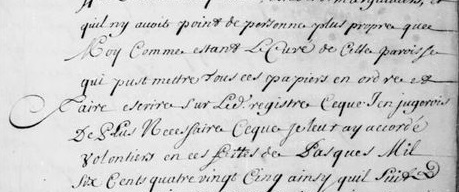 quil ny avoit point de personne plus propre que
Moy Comme estant Le Curé de Cette paroisse
qui pust mettre tous ces papiers en ordre et
faire escrire sur Led. registre Ceque Jen jugerois
De Plus Necessaire Ceque Je leur ay accordé
Volontiers en ces festes de Pasques Mil
Six Cents quatre vingt Cinq ainsy quil Suit